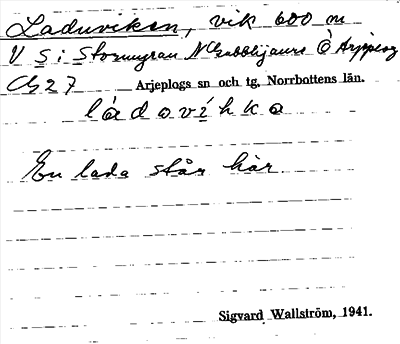 Laduviken, vik 600 m
V S i Storungran N Gubblijaure Ö Arjeplog
Cb 27 Arjeplogs sn och tg, Norrbottens län.
ládovíhka
En lada står här.
Sigvard Wallström, 1941.